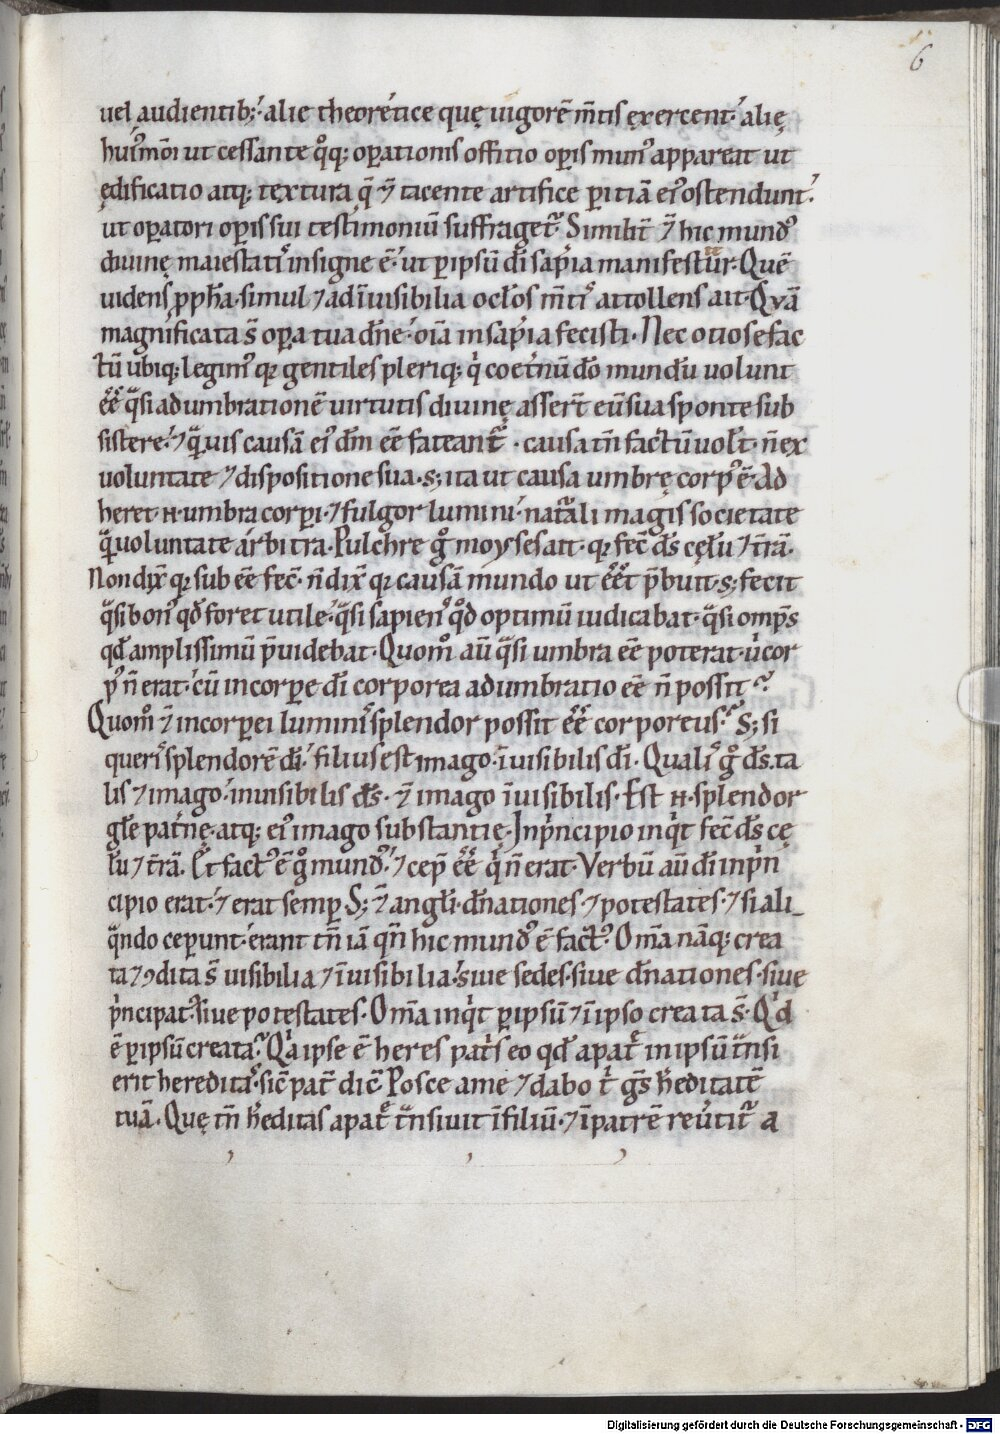 6
uel audientib;· alie theoretice quę uigorē m̄tis ęxercent· alię
hui᷒modi ut cessante qͦq; oꝑationis offitio oꝑis mun᷒ appareat ut
ędificatio atq; textura q̄ ⁊ tacente artifice ꝑitiā ei᷒ ostendunt·
ut oꝑatori oꝑis sui testimoniū suffraget᷑· Similit̄ ⁊ hic mund᷒
diuinę maiestatis insigne ē· ut ꝑ ipsū d̄i sapīa manifestur· Quē
uidens ꝓph̄a· simul ⁊ ad īuisibilia ocl̄os m̄tis attollens ait· Qvā
magnificata s̄ oꝑa tua dn̄e· om̄ia in sapīa fecisti· Nec otiose fac
tū ubiq; legim᷒ qꝛ gentiles pleriq; qi coet̄nū dō mundū uolunt
ēē qͣsi adumbrationē uirtutis diuinę asser̄t eū sua sponte sub
sistere· ⁊ qͣuis causā ei᷒ dm̄ ēē fateant᷑· causa tn̄ factū uol̄t· n̄ ex
uoluntate ⁊ dispositione sua· s; ita ut causa umbrę corp᷒ ē· Ad
heret n· umbra corꝑi· ⁊ fulgor lumini· nat᷑ali magis societate
qͣ uoluntate arbitra· Pulchre gͦ moyses ait· qꝛ fec̄ ds̄ cęlū ⁊ t̄rā·
Non dix̄ qꝛ sub ēē fec̄· n̄ dix̄ qꝛ causā mundo ut ēēt p̄buit· s; fecit
qͣsi bon᷒ qd̄ foret utile· qͣsi sapiens qd̄ optimū iudicabat· qͣsi omp̄s
qd̄ amplissimū p̄uidebat· Quom̊ aū qͣsi umbra ēē poterat· ubi cor
p᷒ n̄ erat· cū incorꝑei d̄i corporea adumbratio ēē n̄ possit?
Quom̊ ⁊ incorꝑei luminis splendor possit ēē corporeus? S; si
queris splendorē d̄i· filius est imago īuisibilis d̄i· Qualis gͦ ds̄· ta
lis ⁊ imago· inuisibilis ds̄· ⁊ imago īuisibilis· Est n· splendor
gl̄e pat̄nę· atq; ei᷒ imago substantię· In pincipio inqit fec̄ ds̄ cę
lū ⁊ t̄rā· Et fact᷒ ē gͦ mund᷒· ⁊ cep̄ ēē qi n̄ erat· Verbū aū d̄i in pin
cipio erat· ⁊ erat semꝑ· S; ⁊ angl̄i· dn̄ationes· ⁊ potestates· ⁊ si ali
qͣndo ceꝑunt· erant tn̄ iā qn̄ hic mund᷒ ē fact᷒· Om̄a nāq; crea
ta ⁊ ꝯdita s̄ uisibilia ⁊ īuisibilia· siue sedes· siue dn̄ationes· siue
pincipat᷒· siue potestates· Om̄a inqit ꝑ ipsū ⁊ ī ipso creata s̄· Qid
ē ꝑ ipsū creata? Qia ipse ē heres pat̄s eo qd̄ a pat̄e in ipsū t̄nsi
erit heredita᷒· sic̄ pat̄ dic̄ Posce a me ⁊ dabo ti gs̄ h̄editatē
tuā· Quę tn̄ h̄editas a pat̄e t̄nsiuit ī filiū· ⁊ ī patrē reu̓tit᷑ a
Digitalisierung gefördert durch die Deutsche Forschungsgemeinschaft - DFG